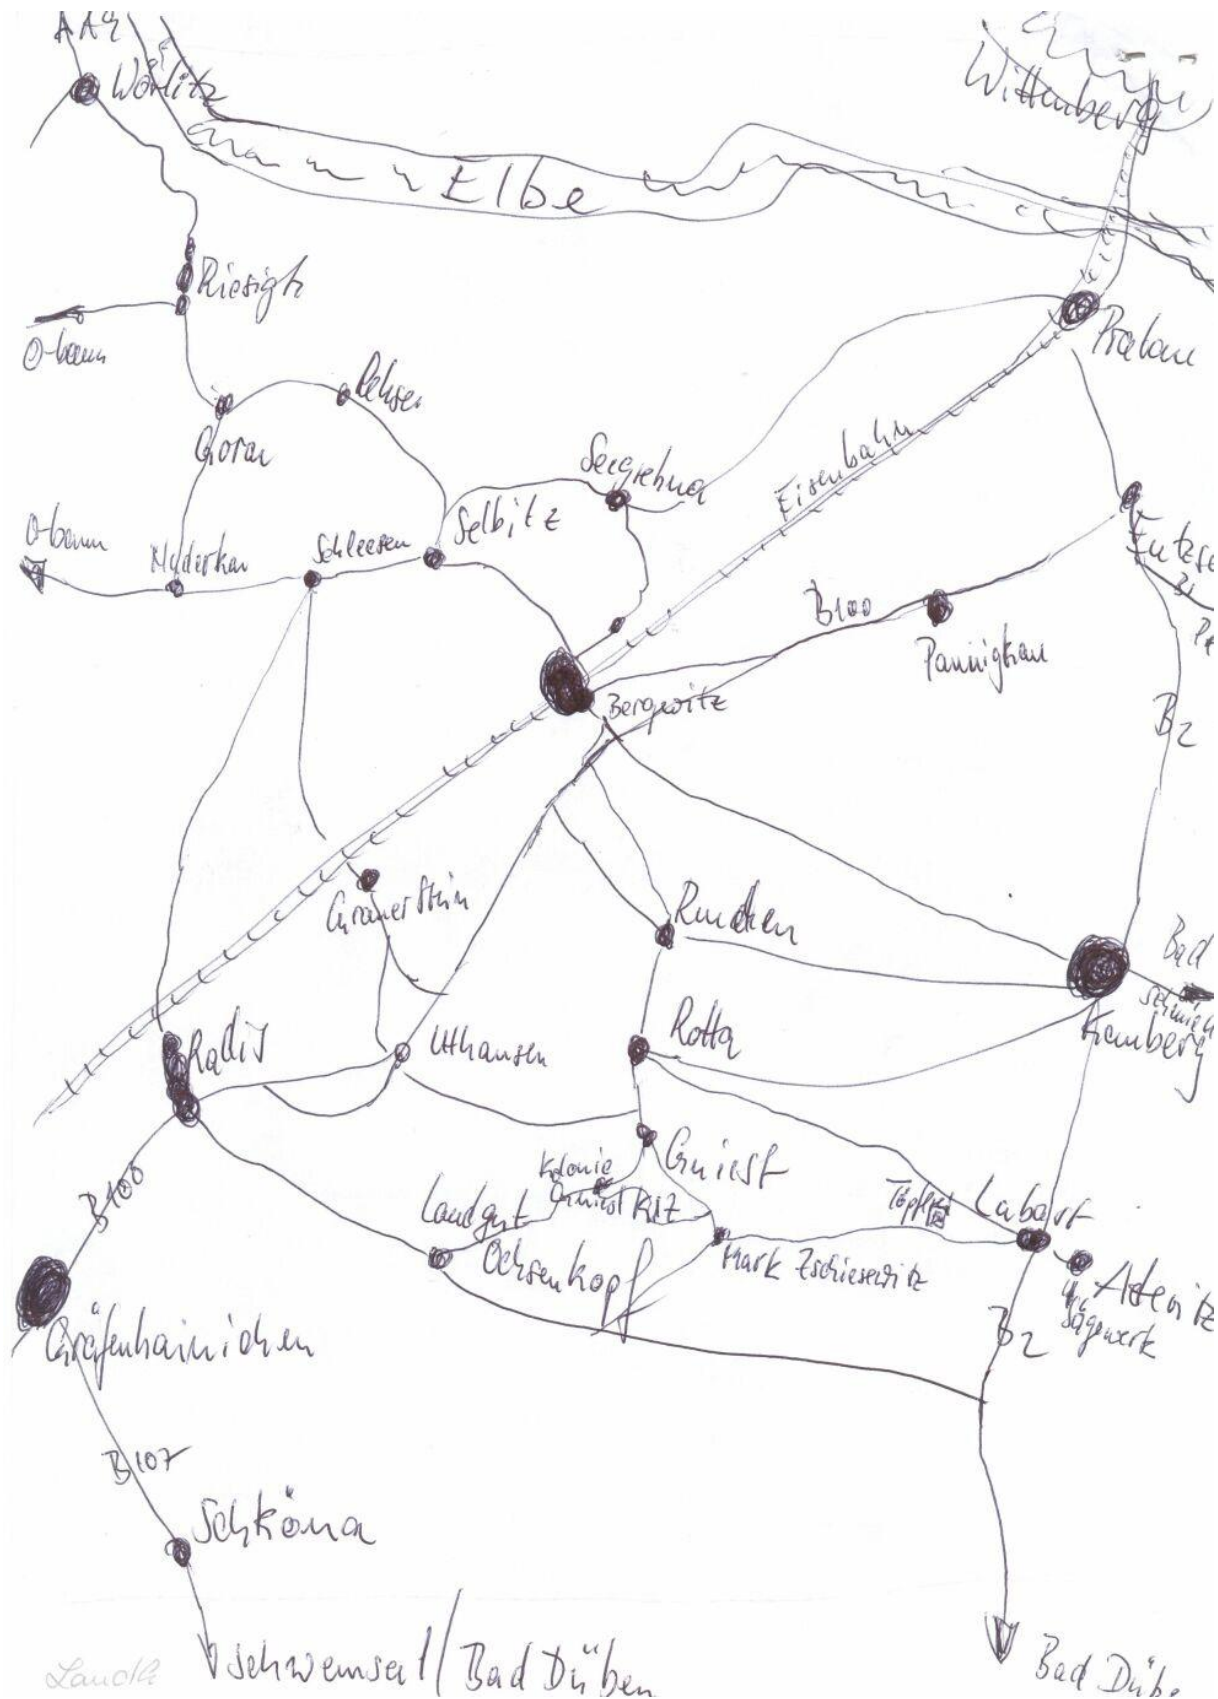 Wörlitz
Wittenberg
Elbe
Riesigk
O-baum
Pratau
Rehsen
Gorau
Seegrehna
Eisenbahn
Selbitz
O-baum
Schleesen
B100
Pannigkau
Bergwitz
B2
Rudden
Bad
Schmied
Kemberg
Radis
Uthausen
Rotta
Gniest
Kolonie
Gniest
KRZ
Landgut
Ochsenkopf
Mark Zschiesewitz
Töpferei
Lubast
Ateritz
Sägewerk
B100
B2
Gräfenhainichen
B107
Schköna
Schwemsal / Bad Düben
Bad Dübe